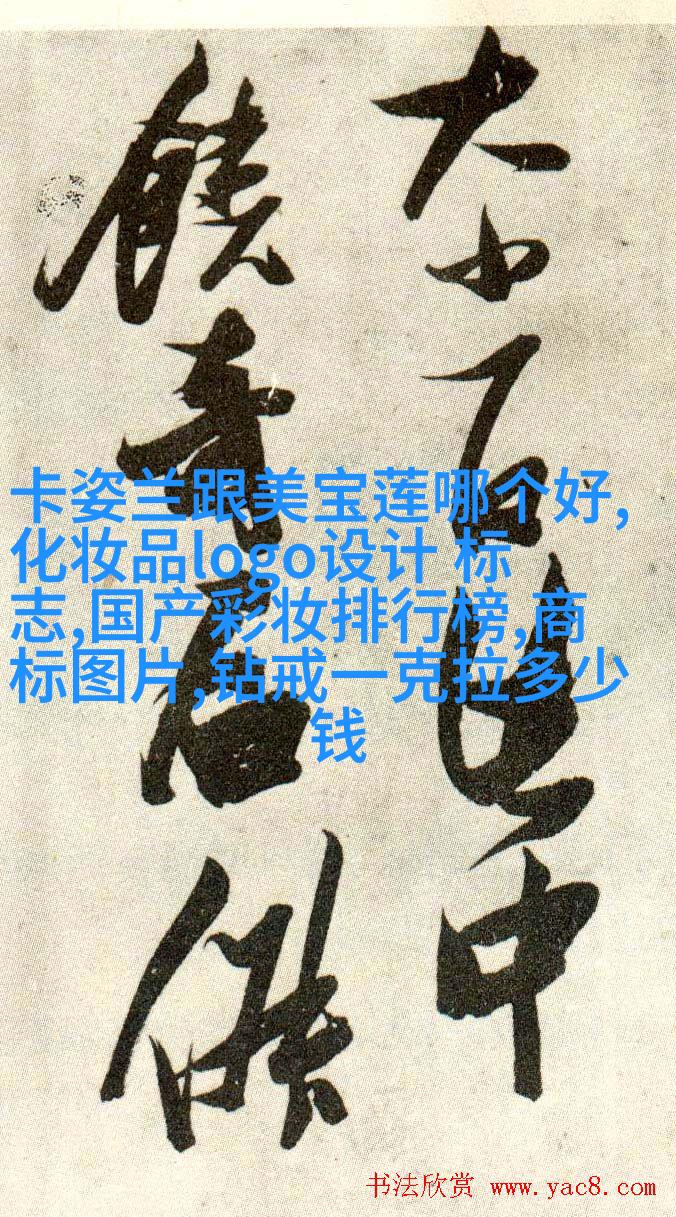 大小石中
饒奇石
卡姿兰跟美宝莲哪个好,
化妆品logo设计 标
志,国产彩妆排行榜,商
标图片,钻戒一克拉多少
钱
书法欣赏 www.yac8.com